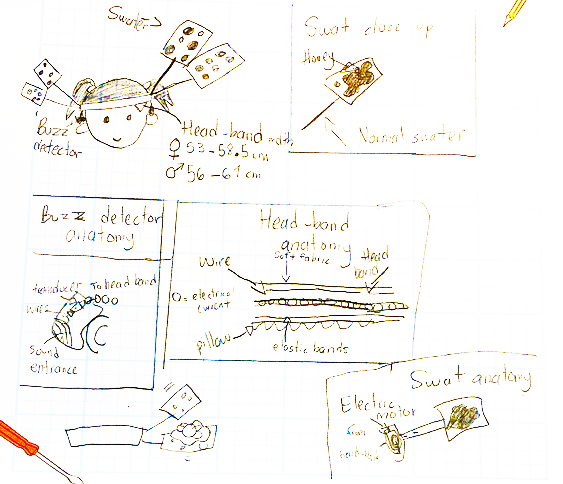 Swater
Swat close up
Honey
Normal swater
Buzz
detector
Head-band width
♀ 53-58.5 cm
♂ 56-61 cm
Buzz detector
anatomy
transducer To head band
wire
sound
entrance
Head-band
anatomy
soft fabric
wire
Head
band
O = electric
current
pillow
elastic bands
Swat anatomy
Electric
motor